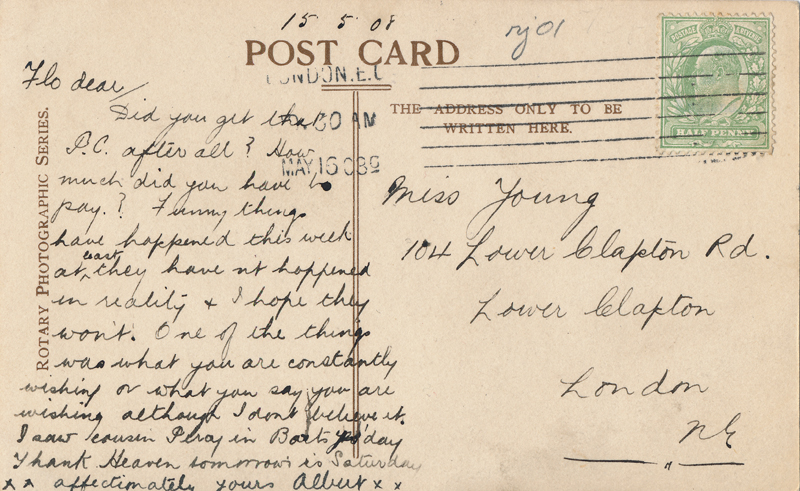 15 5 08
POST CARD
LONDON.E.C
.30 AM
MAY 16 08
POSTAGE
HALF PENNY
THE ADDRESS ONLY TO BE
WRITTEN HERE.
ROTARY PHOTOGRAPHIC SERIES.
Flo dear/
Did you get that
P.C. after all? How
much did you have to
pay.? Funny things
have happened this week
at least they have n't happened
in reality & I hope they
won't. One of the things
was what you are constantly
wishing or what you say you are
wishing although I dont believe it.
I saw cousin Percy in Barts yes'day
Thank Heaven tomorrow is Saturday
x x affectionately yours Albert x x
Miss Young
104 Lower Clapton Rd.
Lower Clapton
London
NE